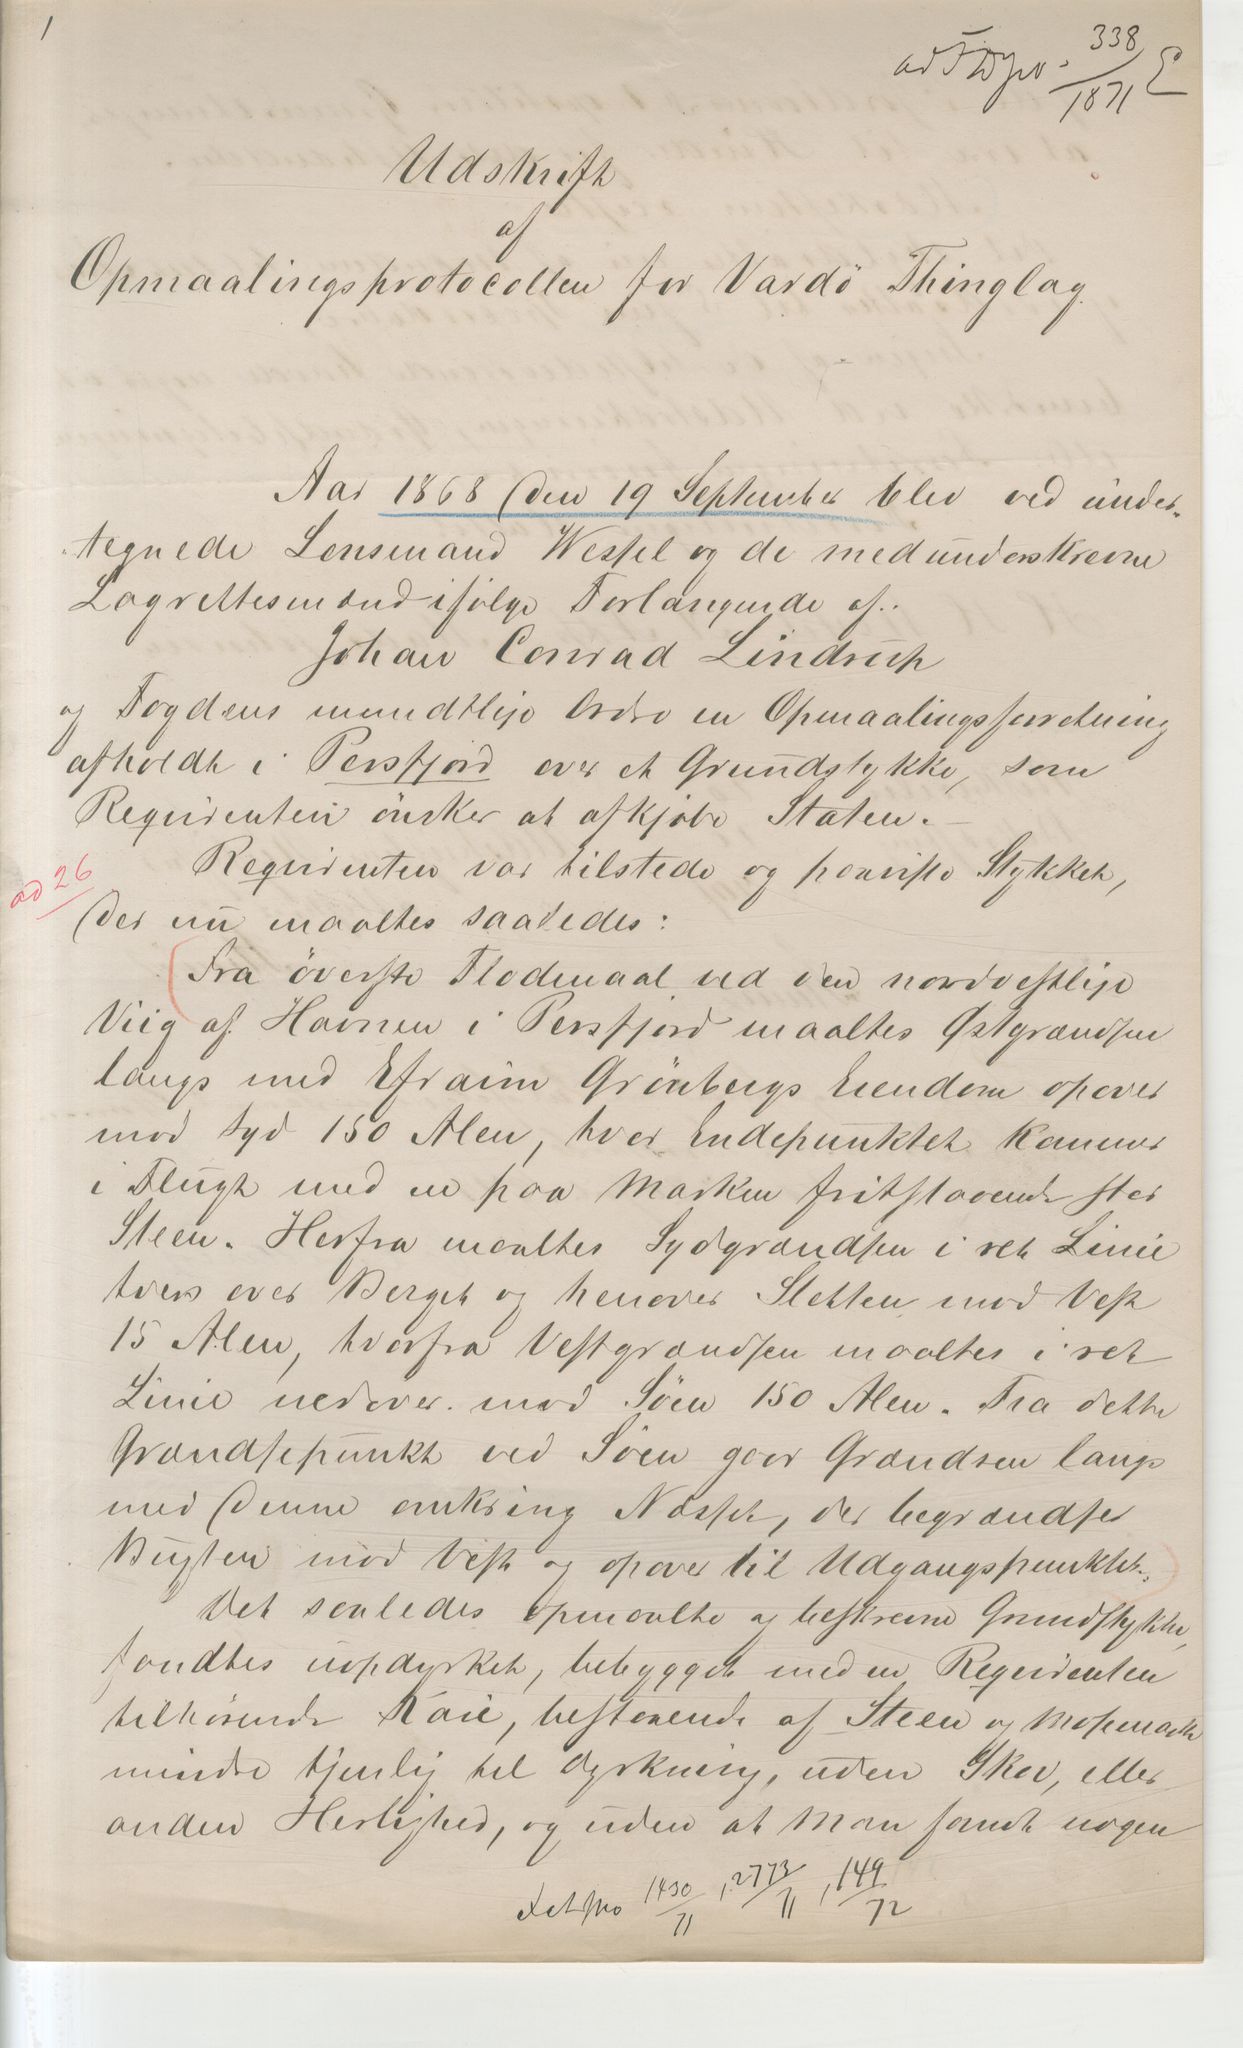 1
338
1871
Udskrift
af
Opmaalingsprotocollen for Vardö Thinglag.
Aar 1868 den 19 September blev ved under-
tegnede Lensmand Wessel og de medunderskrevne
Lagrettesmænd ifølge Forlangende af
Johan Conrad Lindrup
og Fogdens mundtlige Ordre en Opmaalingsforretning
afholdt i Persfjord over et Grundstykke, som
Requirenten önsker at afkjøbe Staten.
Requirenten var tilstede og paaviste Stykket,
ad 26
der nu maaltes saaledes:
Fra överste Flodemaal ved den nordvestlige
Viig af Havnen i Persfjord maaltes Østgrændsen
langs med Efraim Grönbergs Eiendom opover
mod Syd 150 Alen, hvor Endepunktet kommer
i Flugt med en paa Marken fritstaaende stor
Steen. Herfra maaltes Sydgrændsen i ret Linie
tvers over Berget og henover Sletten mod Vest
15 Alen, hvorfra Vestgrændsen maaltes i ret
Linie nedover mod Söen 150 Alen. Fra dette
Grændsepunkt ved Söen gaar Grændsen langs
med denne omkring Næsset, der begrændser
Bugten mod Vest og opover til Udgangspunktet.
Det saaledes opmaalte og beskrevne Grundstykke,
fandtes uopdyrket, bebygget med en Requirenten
tilhörende Kaie, bestaaende af Steen og Mosemark
mindre tjenlig til Dyrkning, uden Skov, eller
anden Herlighed, og uden at man fandt nogen
1430/71, 2773/71, 149/72